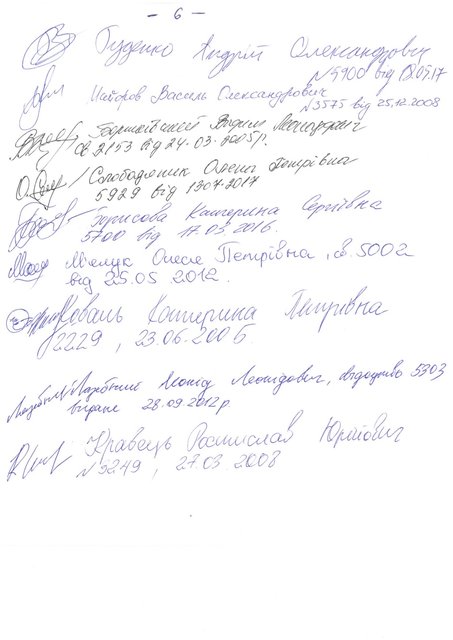 - 6 -
Гуденко Андрій Олександрович
N 5900 від 18.05.17
Майоров Василь Олександрович
N3575 від 25.12.2008
Вадим
2153 від 24.03.2005р.
Слободяник Олена Петрівна
5929 від 1907.2017
Борисова Катерина Сергіївна
5700 від 17.03.2016.
Олеся Петрівна, св. 5002
від 25.05.2012.
Коваль Катерина Петрівна
2229, 23.06.2005
Леонід Леонідович, свідоцтво 5303
видане 28.09.2012р.
Кравець Ростислав Юрійович
N3249, 27.03.2008